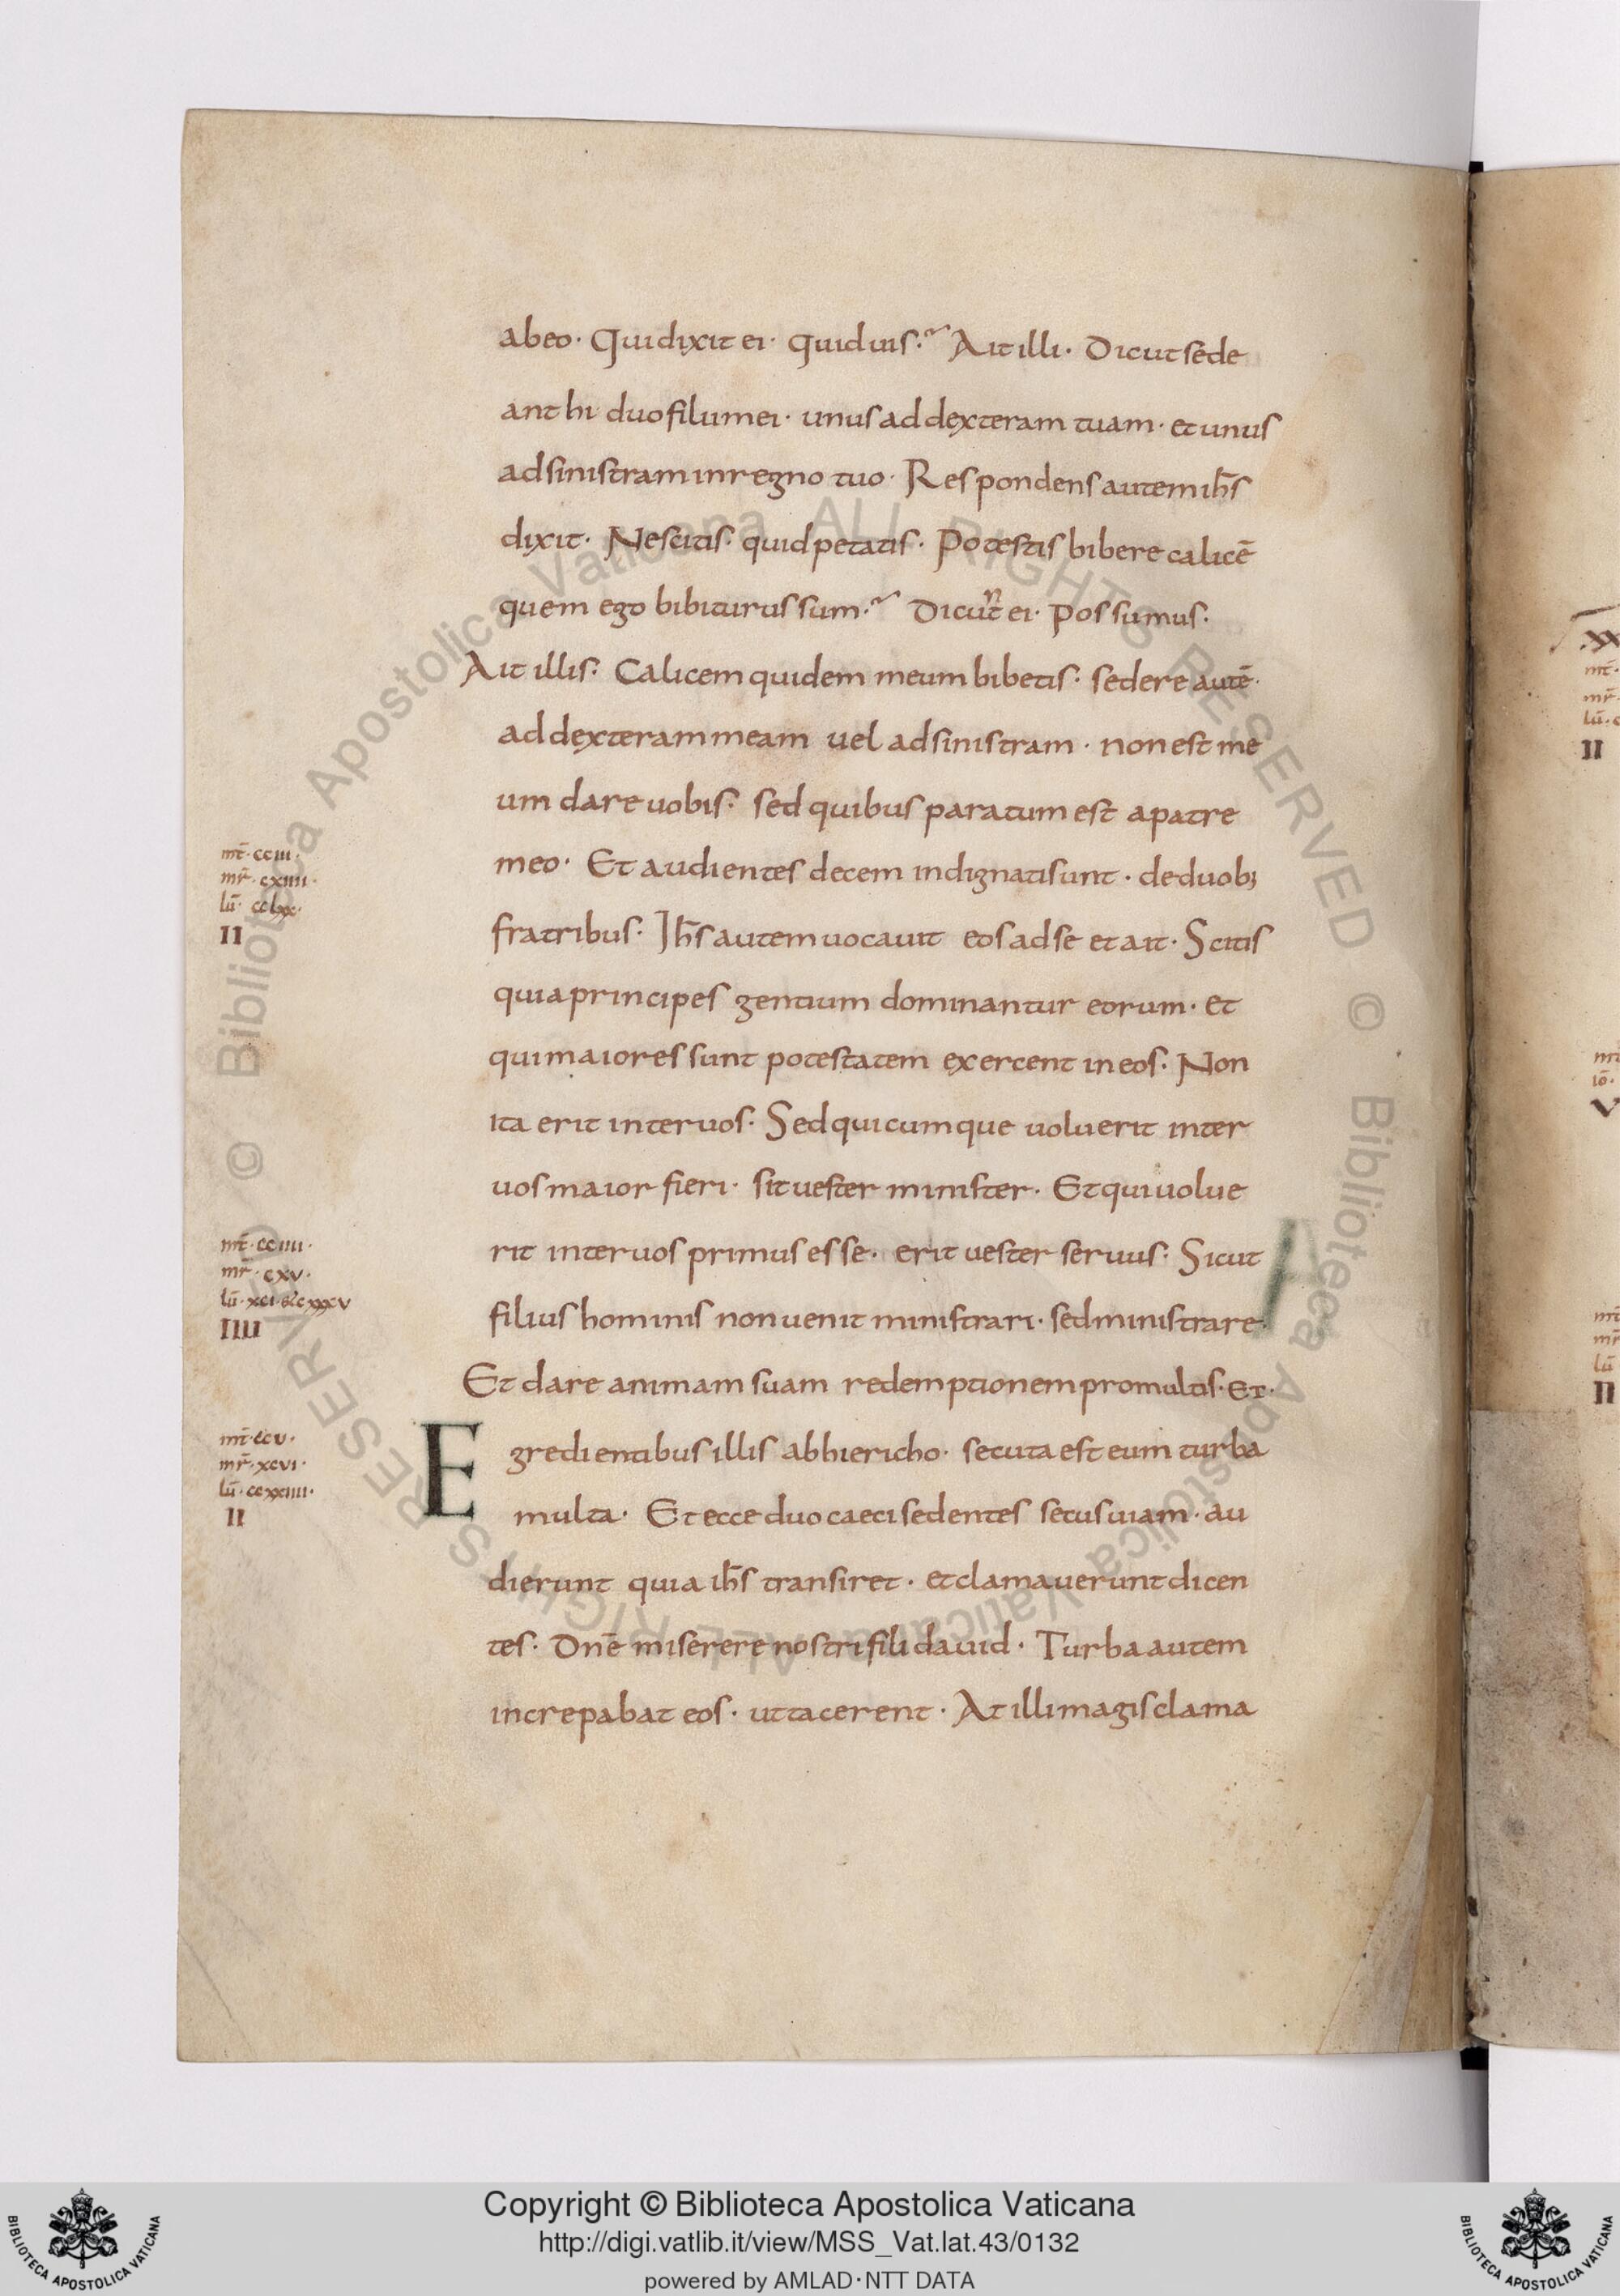 abeo· Qui dixit ei· quid uis· Ait illi· Dic ut sede
ant hi duo filii mei· unus ad dexteram tuam· et unus
ad sinistram in regno tuo· Respondens autem ih̅s
dixit· Nescitis· quid petatis· Potestis bibere calicē
quem ego bibiturus sum· Dicunt ei· Possumus·
Ait illis· Calicem quidem meum bibetis· sedere autē·
ad dexteram meam uel ad sinistram· non est me
um dare uobis· sed quibus paratum est a patre
mt̅·cciii·
mr̅·cxiiii·
lū·cclxx·
II
meo· Et audientes decem indignati sunt· de duob;
fratribus· Ih̅s autem uocauit eos ad se et ait· Scitis
quia principes gentium dominantur eorum· et
qui maiores sunt potestatem exercent in eos· Non
ita erit inter uos· Sed quicumque uoluerit inter
uos maior fieri· sit uester minister· Et qui uolue
mt̅·cciiii·
mr̅·cxv·
IIII
rit inter uos primus esse· erit uester seruus· Sicut
filius hominis non uenit ministrari· sed ministrare·
Et dare animam suam redemptionem pro multis· Et·
mt̅·ccv·
mr̅·xcvi·
lū·ccxxiiii·
II
Egredientibus illis ab hiericho· secuta est eum turba
multa· Et ecce duo caeci sedentes secus uiam· au
dierunt quia ih̅s transiret· et clamauerunt dicen
tes· Dn̅e miserere nostri fili dauid· Turba autem
increpabat eos· ut tacerent· At illi magis clama
II
V
II
© Biblioteca Apostolica Vaticana ALL RIGHTS RESERVED
© Biblioteca Apostolica Vaticana ALL RIGHTS RESERVED
Copyright © Biblioteca Apostolica Vaticana
http://digi.vatlib.it/view/MSS_Vat.lat.43/0132
powered by AMLAD·NTT DATA
BIBLIOTECA APOSTOLICA VATICANA
BIBLIOTECA APOSTOLICA VATICANA